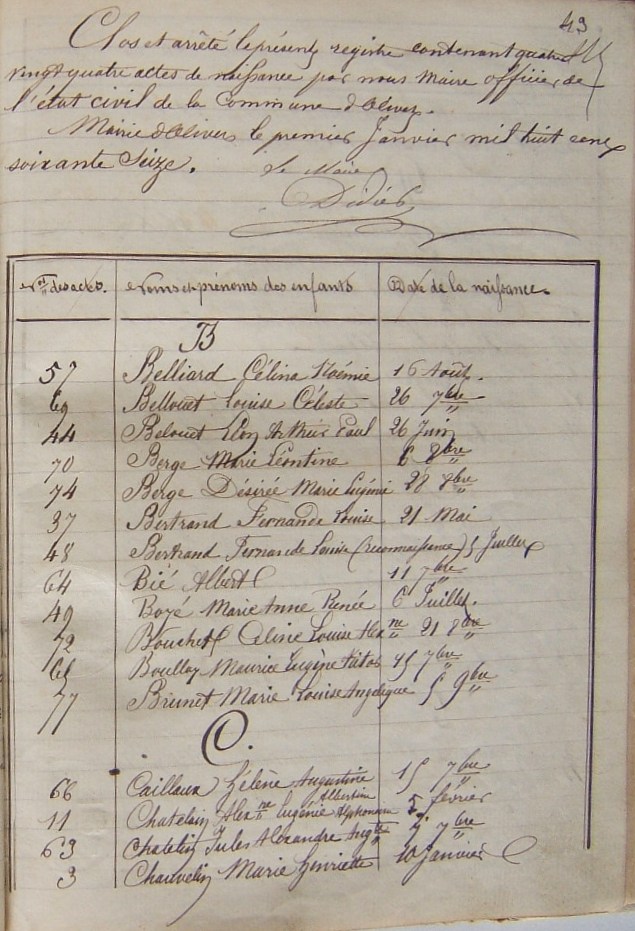 49
Clos et arrêté le présent registre contenant quatre
vingt quatre actes de naissance par nous Maire officier de
l'état civil de la Commune d'Olivers.
Mairie d'Olivers le premier Janvier mil huit cent
soixante Seize.
Le Maire
Nos des actes. Noms et prénoms des enfants Date de la naissance.
B
57 Belliard Célina Noémie 16 Août.
69 Bellouet Louise Céleste 26 7bre
44 Belouet Léon Arthur Paul 26 Juin
70 Berge Marie Léontine 6 8bre
74 Berge Désirée Marie Eugénie 28 8bre
37 Bertrand Fernande Louise 21 Mai
48 Bertrand Fernande Louise (reconnaissance) 5 Juillet
64 Bié Albert 11 7bre
49 Boyé Marie Anne Renée 6 Juillet.
72 Bouchet Celine Louise Alexne 21 8bre
Boullay Maurice Eugène 15 7bre
77 Brunet Marie Louise Angelique 5 9bre
C.
66 Caillaux Hélène Augustine 15 7bre
Albertine
11 Chatelain Alexne Eugénie Alphonsine février
63 Chatelin Jules Alexandre 7bre
3 Chauvelin Marie Henriette 20 Janvier